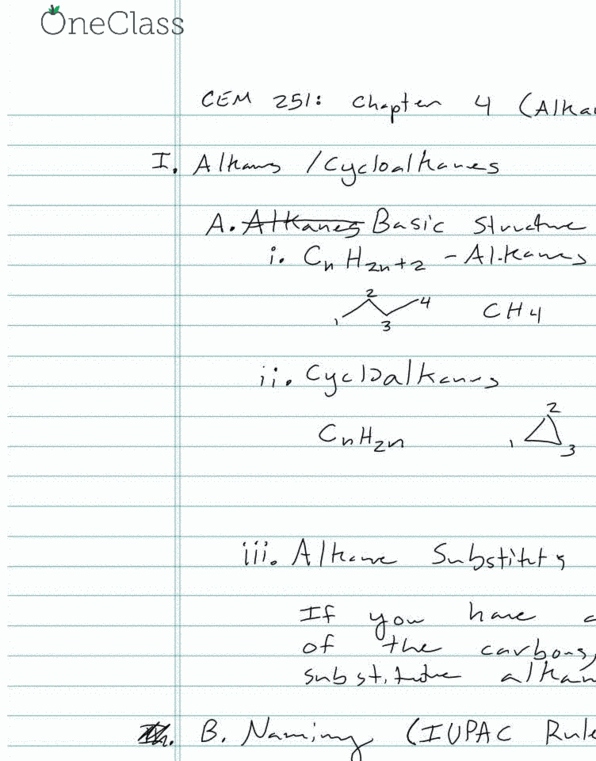 OneClass
CEM 251: Chapter 4 (Alka
I. Alkanes / Cycloalkanes
A. Alkanes Basic Structure
i. CnH2n+2 - Alkanes
1 2 3 4 CH4
ii. Cycloalkanes
CnH2n 1 2 3
iii. Alkane Substituts
If you have a
of the carbons,
substitute alkan
B. Naming (IUPAC Rule